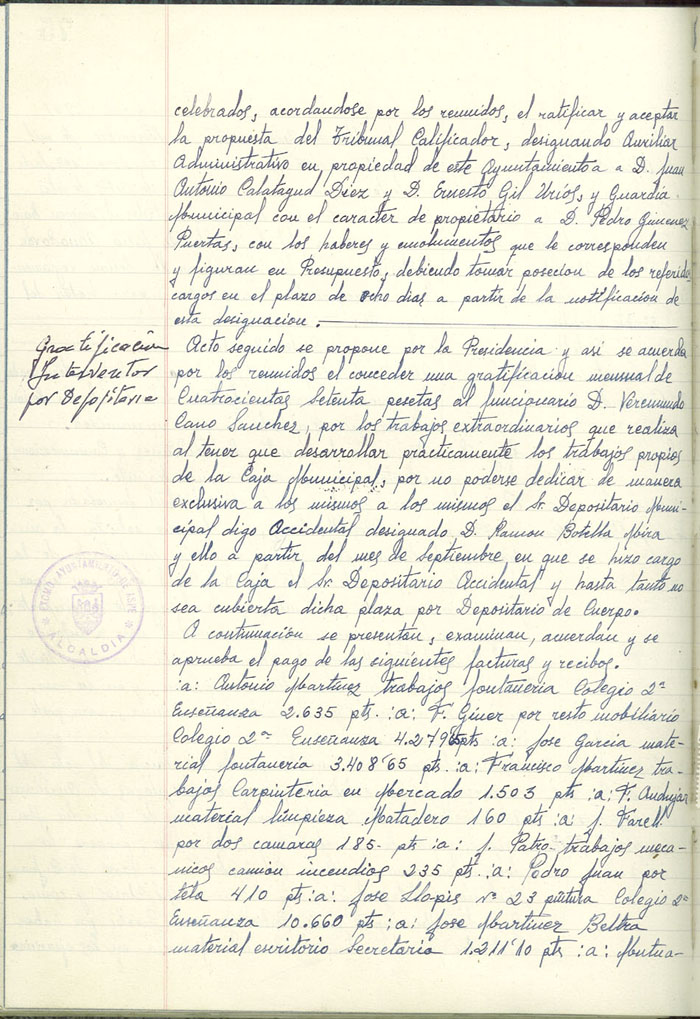 celebrados, acordandose por los reunidos, el ratificar y aceptar
la propuesta del Tribunal Calificador, designando Auxiliar
Administrativo en propiedad de este Ayuntamiento a D. Juan
Antonio Calatayud Diez y D. Ernesto Gil Urios, y Guardia
Municipal con el caracter de propietario a D. Pedro Gimenez
Puertas, con los haberes y emolumentos que le corresponden
y figuran en Presupuesto, debiendo tomar posecion de los referidos
cargos en el plazo de ocho dias a partir de la notificación de
esta designacion.
Gratificación
Interventor
por Depositaria
Acto seguido se propone por la Presidencia y asi se acuerda
por los reunidos el conceder una gratificacion mensual de
Cuatrocientas Setenta pesetas al funcionario D. Veremundo
Cano Sanchez, por los trabajos extraordinarios que realiza
al tener que desarrollar practicamente los trabajos propios
de la Caja Municipal, por no poderse dedicar de manera
exclusiva a los mismos a los mismos el Sr. Depositario Muni-
cipal digo Accidental designado D. Ramon Botella Mira
y ello a partir del mes de Septiembre en que se hizo cargo
de la Caja el Sr. Depositario Accidental y hasta tanto no
sea cubierta dicha plaza por Depositario de Cuerpo.
A continuación se presentan, examinan, acuerdan y se
aprueba el pago de las siguientes facturas y recibos.
:a: Antonio Martinez trabajos fontaneria Colegio 2ª
Enseñanza 2.635 pts :a: F. Giner por resto mobiliario
Colegio 2ª Enseñanza pts :a: Jose Garcia mate-
rial fontaneria 3.408'65 pts :a: Francisco Martinez tra-
bajos Carpinteria en Mercado 1.503 pts :a: F. Andujar
material limpieza Matadero 160 pts :a: J. Farell
por dos camaras 185- pts :a: J. Patro trabajos meca-
nicos camión incendios 235 pts. :a: Pedro Juan por
tela 410 pts :a: Jose Llopis nº 23 pintura Colegio 2ª
Enseñanza 10.660 pts :a: Jose Martinez Beltra
material escritorio Secretaria 1.211'10 pts :a: Mutua-
EXCMO. AYUNTAMIENTO DE ASPE
ALCALDIA